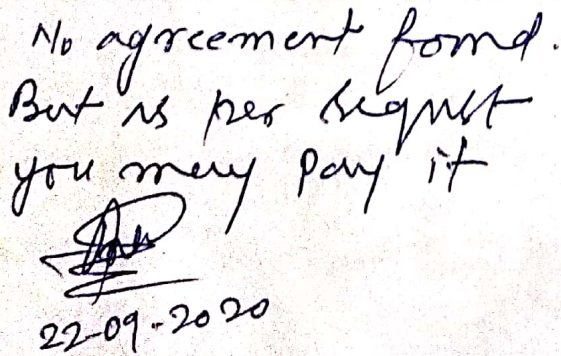 No agreement found.
But as per request
you may pay it
22-09-2020